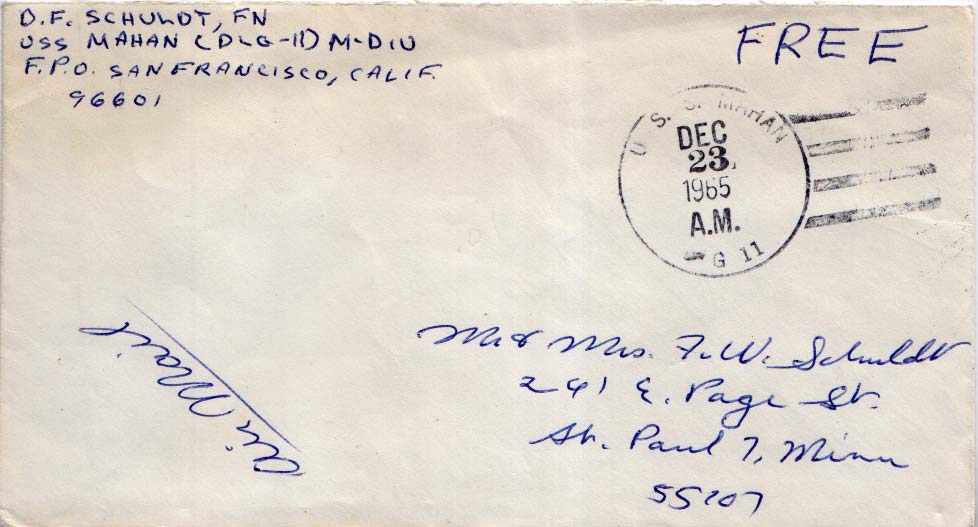 D.F. SCHULDT, FN
USS MAHAN (DLG-11) M-DIV
F.P.O. SAN FRANCISCO, CALIF.
96601
FREE
U. S. S. MAHAN
DEC
23
1965
A.M.
G 11
Air Mail
Mr & Mrs. F.W. Schuldt
241 E. Page St.
St. Paul 7, Minn
55107